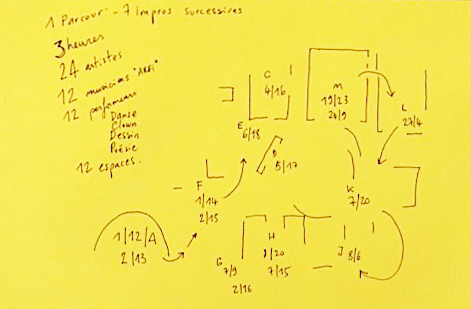 1 Parcour - 7 impros successives
3 heures
24 artistes
12 musiciens "ARFI"
12 performeurs
Danse
Clown
Dessin
Poésie
12 espaces.
C
4/16
M
19/23
24/9
L
27/4
E
6/18
D
5/17
F
1/14
2/15
K
7/20
1/12/A
2/13
G
7/9
2/16
H
7/15
J 8/6